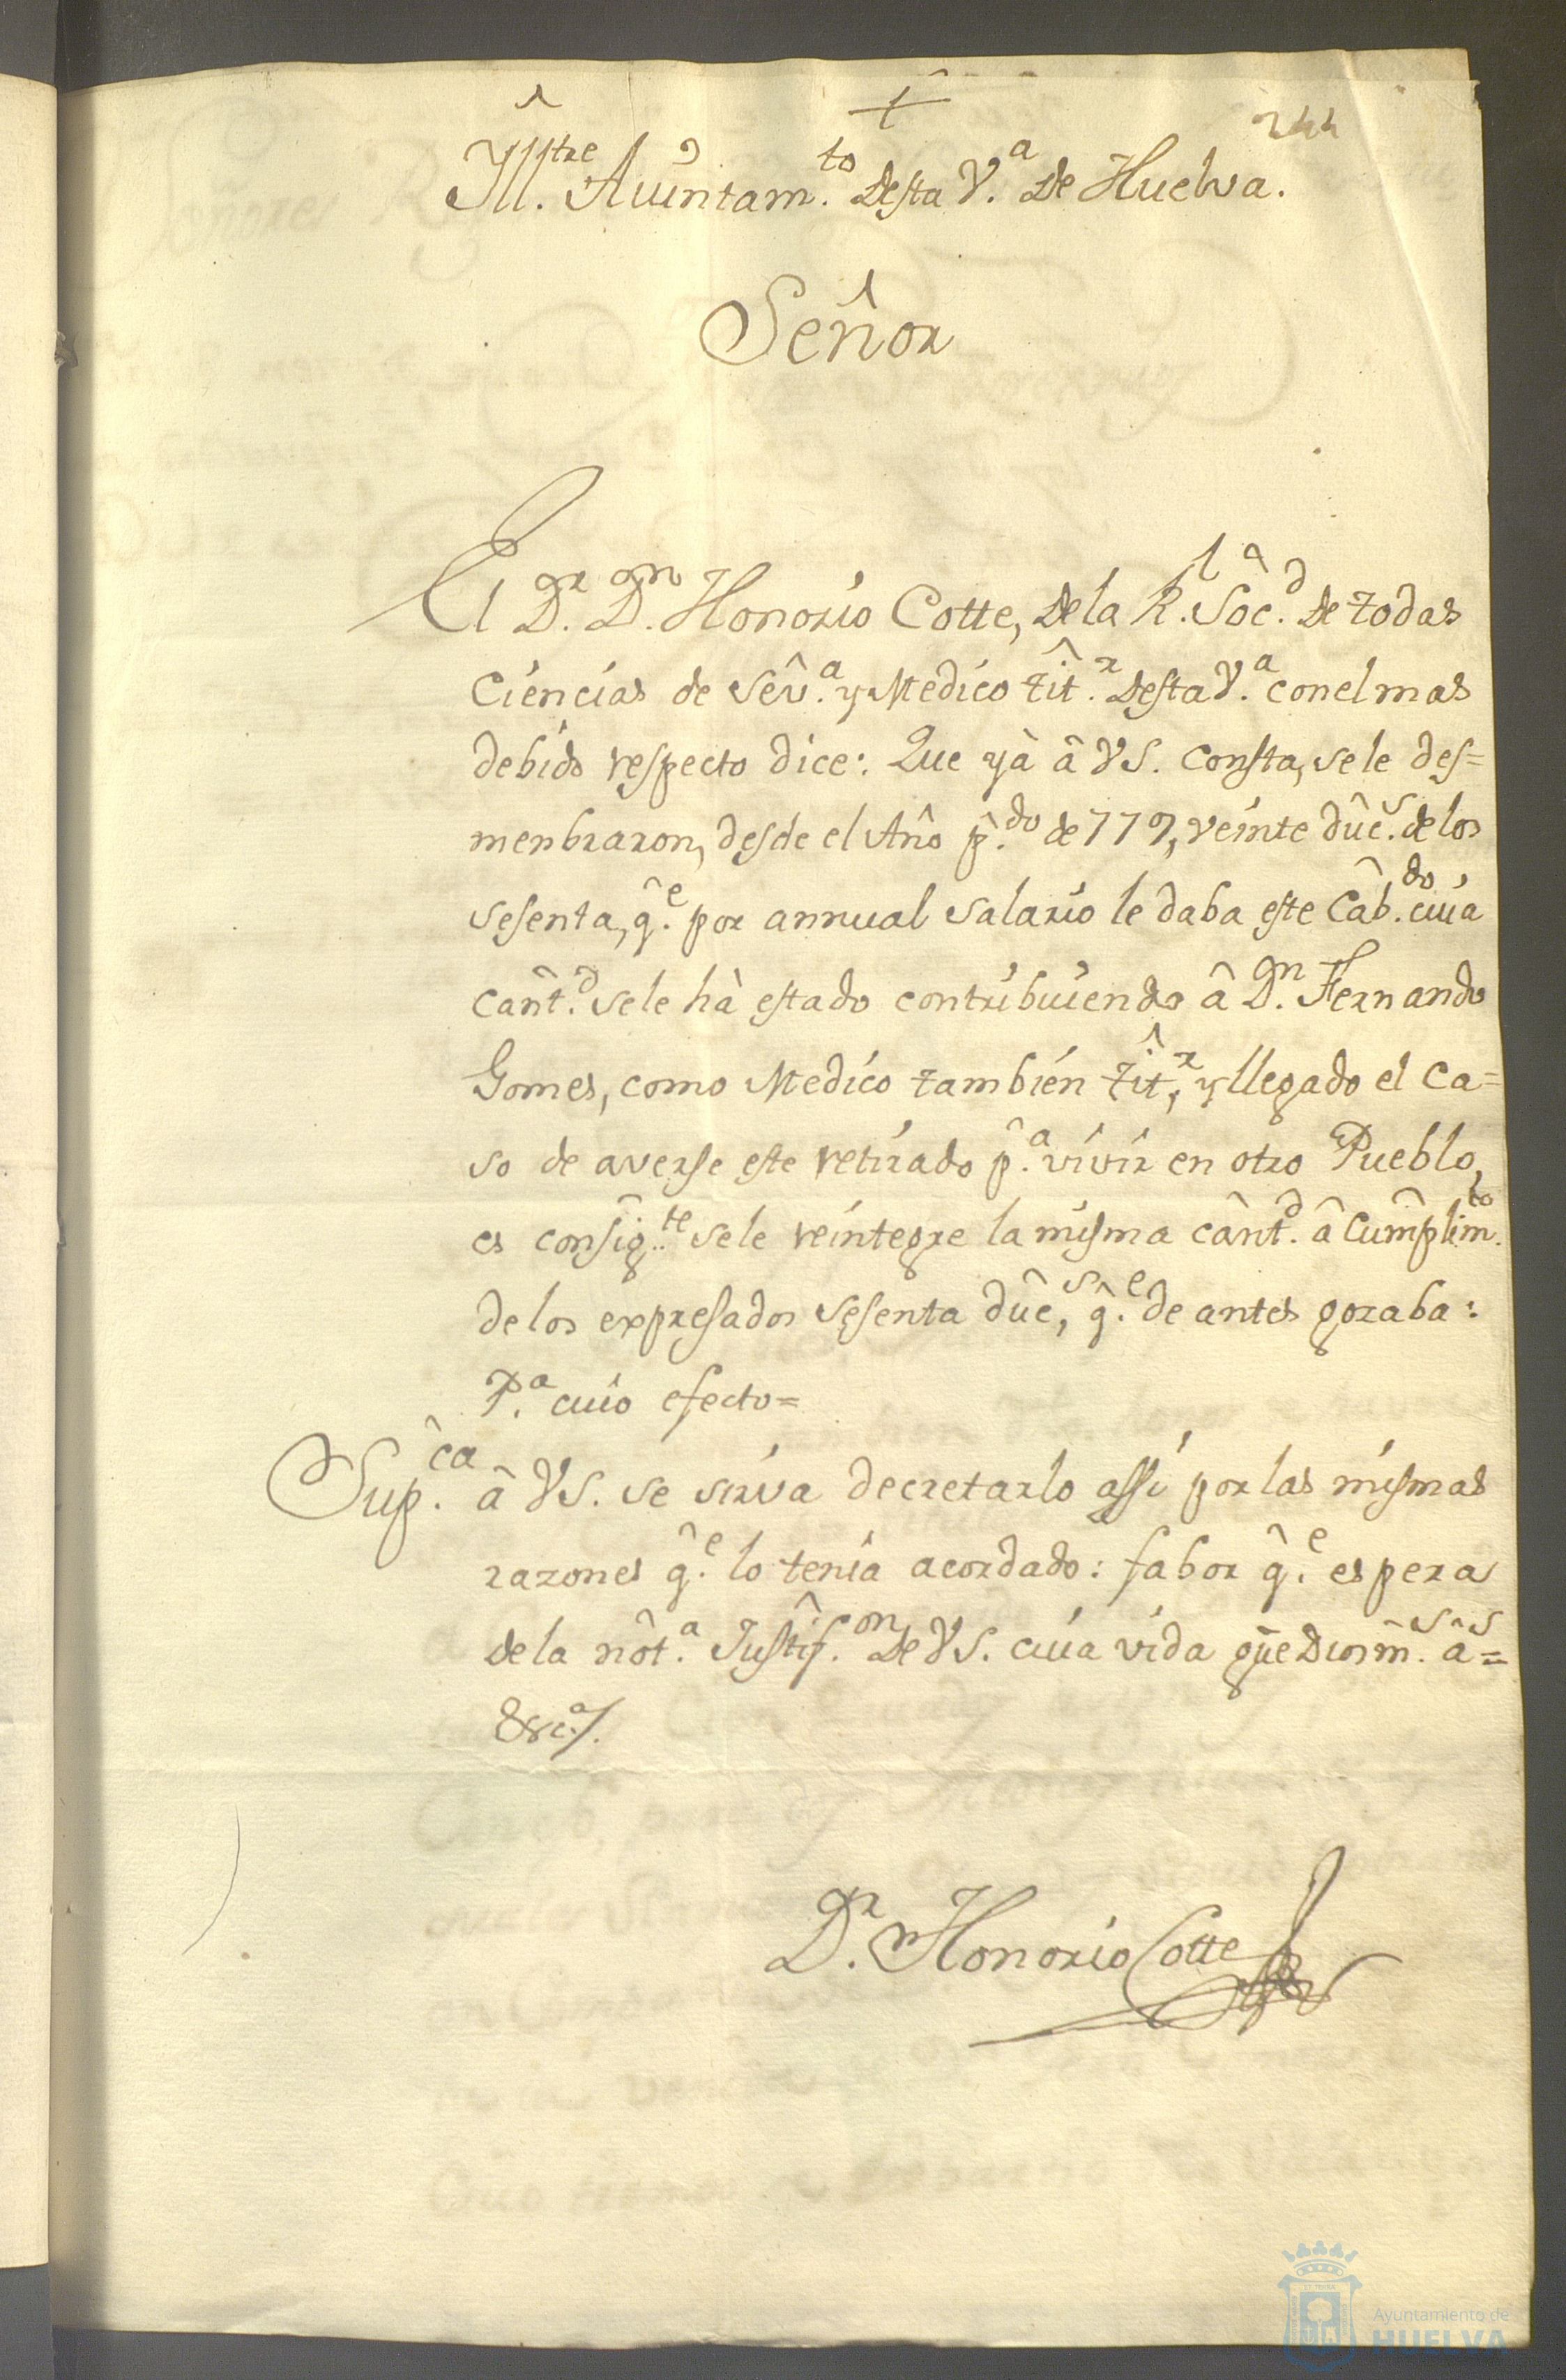 244
Yll.tre Aiuntam.to Desta V.a De Huelva.
Señor
El D.r D.n Honorio Cotte, Dela R.l Soc.d De todas
Ciencias de Sev.a y Medico tit.r Desta V.a con el mas
debido respecto dice: Que yà â VS. Consta, se le des=
menbraron, desde el Año p.do de 779, veinte duc.s de los
sesenta, q.e por annual salario le daba este Cab.do cuia
cant.d se le hà estado contribuiendo â D.n Fernando
Gomes, como Medico tambien tit.r, y llegado el ca=
so de averse este retirado p.a vivir en otro Pueblo,
es consig.te se le reintegre la misma cant.d â Cumplim.to
de los expresados sesenta duc.s, q.e de antes gozaba:
P.a cuio efecto=
Sup.ca â VS. se sirva decretarlo assi por las mismas
razones q.e lo tenia acordado: fabor q.e espera
de la not.a Justif.on De VS. cuia vida gue Dios m.s a.s=
&c.a/.
D.r Honorio Cotte
Ayuntamiento de
HUELVA